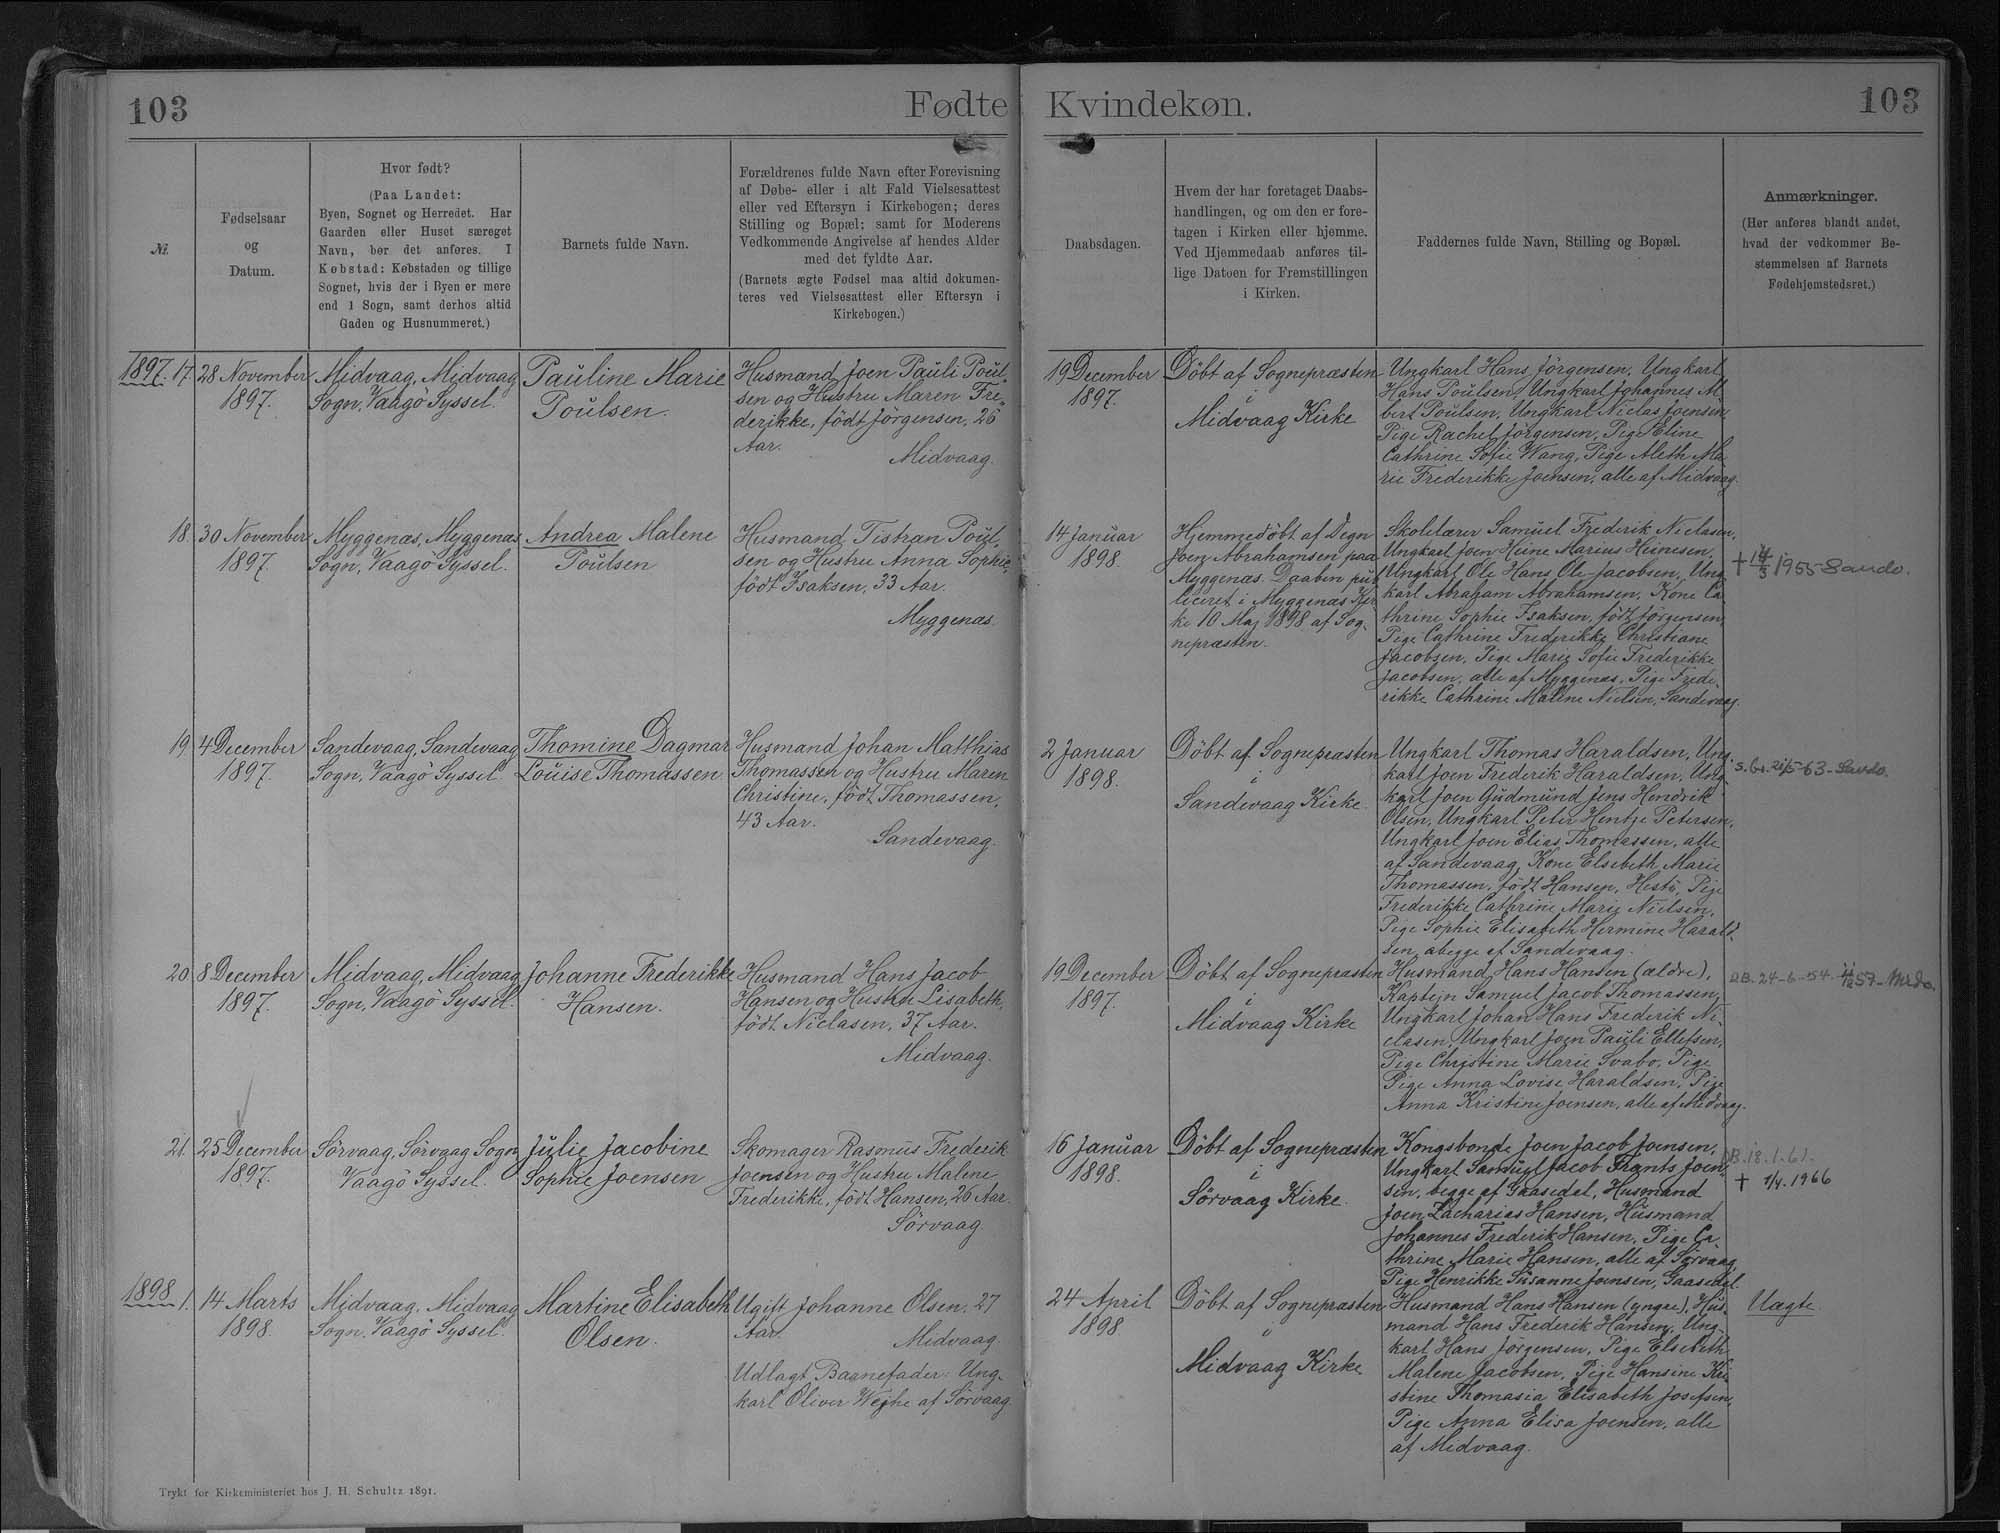 103
Fødte
Kvindekøn.
103
№.
Fødselsaar
og
Datum.
Hvor født?
(Paa Landet:
Byen, Sognet og Herredet. Har
Gaarden eller Huset særeget
Navn, bør det anføres. I
Købstad: Købstaden og tillige
Sognet, hvis der i Byen er mere
end 1 Sogn, samt derhos altid
Gaden og Husnummeret.)
Barnets fulde Navn.
Forældrenes fulde Navn efter Forevisning
af Døbe- eller i alt Fald Vielsesattest
eller ved Eftersyn i Kirkebogen; deres
Stilling og Bopæl; samt for Moderens
Vedkommende Angivelse af hendes Alder
med det fyldte Aar.
(Barnets ægte Fødsel maa altid dokumen-
teres ved Vielsesattest eller Eftersyn i
Kirkebogen.)
Daabsdagen.
Hvem der har foretaget Daabs-
handlingen, og om den er fore-
tagen i Kirken eller hjemme.
Ved Hjemmedaab anføres til-
lige Datoen for Fremstillingen
i Kirken.
Faddernes fulde Navn, Stilling og Bopæl.
Anmærkninger.
(Her anføres blandt andet,
hvad der vedkommer Be-
stemmelsen af Barnets
Fødehjemstedsret.)
1897. 17.
28 November
1897.
Midvaag, Midvaag
Sogn, Vaagö Syssel.
Pauline Marie
Poulsen.
Husmand Joen Pauli Poul-
sen og Hustru Maren Fre-
derikke, födt Jörgensen, 26
Aar.
Midvaag.
19 December
1897.
Döbt af Sognepræsten
i
Midvaag Kirke
Ungkarl Hans Jörgensen, Ungkarl
Hans Poulsen, Ungkarl Johannes Al-
bert Poulsen, Ungkarl Niclas Joensen,
Pige Rachel Jörgensen, Pige Eline
Cathrine Sofie Wang, Pige Aleth Ma-
rie Frederikke Joensen, alle af Midvaag.
18.
30 November
1897.
Myggenæs, Myggenæs
Sogn, Vaagö Syssel.
Andrea Malene
Poulsen
Husmand Tistran Poul-
sen og Hustru Anna Sophie,
födt Isaksen, 33 Aar.
Myggenæs.
14 Januar
1898.
Hjemmedöbt af Degn
Joen Abrahamsen paa
Myggenæs. Daaben pub-
liceret i Myggenæs Kir-
ke 10 Maj 1898 af Sog-
nepræsten.
Skolelærer Samuel Frederik Niclasen,
Ungkarl Joen Heine Marius Heinesen,
Ungkarl Ole Hans Ole-Jacobsen, Ung-
karl Abraham Abrahamsen, Kone Ca-
thrine Sophie Isaksen, födt Jörgensen,
Pige Cathrine Frederikke Christiane
Jacobsen, Pige Marie Sofie Frederikke
Jacobsen, alle af Myggenæs, Pige Frede-
rikke Cathrine Malene Nielsen, Sandevaag.
† 14/3 1955 Sandv.
19.
4 December
1897.
Sandevaag, Sandevaag
Sogn, Vaagö Syssel.
Thomine Dagmar
Louise Thomassen.
Husmand Johan Matthias
Thomassen og Hustru Maren
Christine, födt Thomassen,
43 Aar.
Sandevaag.
2 Januar
1898.
Döbt af Sognepræsten
i
Sandevaag Kirke.
Ungkarl Thomas Haraldsen, Ung-
karl Joen Frederik Haraldsen, Ung-
karl Joen Gudmund Jens Hendrik
Olsen, Ungkarl Peter Hentze Petersen,
Ungkarl Joen Elias Thomassen, alle
af Sandevaag, Kone Elsebeth Marie
Thomassen, födt Hansen, Hestö, Pige
Frederikke Cathrine Marie Nielsen,
Pige Sophie Elisabeth Hermine Harald-
sen, abegge af Sandevaag.
20.
8 December
1897.
Midvaag, Midvaag
Sogn, Vaagö Syssel.
Johanne Frederikke
Hansen.
Husmand Hans Jacob
Hansen og Hustru Lisabeth,
födt Niclasen, 37 Aar.
Midvaag.
19 December
1897.
Döbt af Sognepræsten
i
Midvaag Kirke
Husmand Hans Hansen (ældre),
Kaptejn Samuel Jacob Thomassen,
Ungkarl Johan Hans Frederik Ni-
clasen, Ungkarl Joen Pauli Ellefsen,
Pige Christine Marie Svabo, Pige
Pige Anna Lovise Haraldsen, Pige
Anna Kristine Joensen, alle af Midvaag.
24-6-54.
21.
25 December
1897.
Sörvaag, Sörvaag Sogn
Vaagö Syssel.
Julie Jacobine
Sophie Joensen
Skomager Rasmus Frederik
Joensen og Hustru Malene
Frederikke, födt Hansen, 26 Aar.
Sörvaag.
16 Januar
1898.
Döbt af Sognepræsten
i
Sörvaag Kirke.
Kongsbonde Joen Jacob Joensen,
Ungkarl Samuel Jacob Frants Joen-
sen, begge af Gaasedal, Husmand
Joen Zacharias Hansen, Husmand
Johannes Frederik Hansen, Pige Ca-
thrine Marie Hansen, alle af Sörvaag,
Pige Henrikke Susanne Joensen, Gaasedal.
B. 18.1.61.
† 1/4. 1966
1898 1.
14 Marts
1898.
Midvaag, Midvaag
Sogn, Vaagö Syssel.
Martine Elisabeth
Olsen.
Ugift Johanne Olsen, 27
Aar.
Midvaag.
Udlagt Barnefader: Ung-
karl Oliver Wejhe af Sörvaag.
24 April
1898.
Döbt af Sognepræsten
i
Midvaag Kirke.
Husmand Hans Hansen (yngre), Hus-
mand Hans Frederik Hansen, Ung-
karl Hans Jörgensen, Pige Elsebeth
Malene Jacobsen, Pige Hansine Kri-
stine Thomasia Elisabeth Josefsen,
Pige Anna Elisa Joensen, alle
af Midvaag.
Uægte.
Trykt for Kirkeministeriet hos J. H. Schultz 1891.